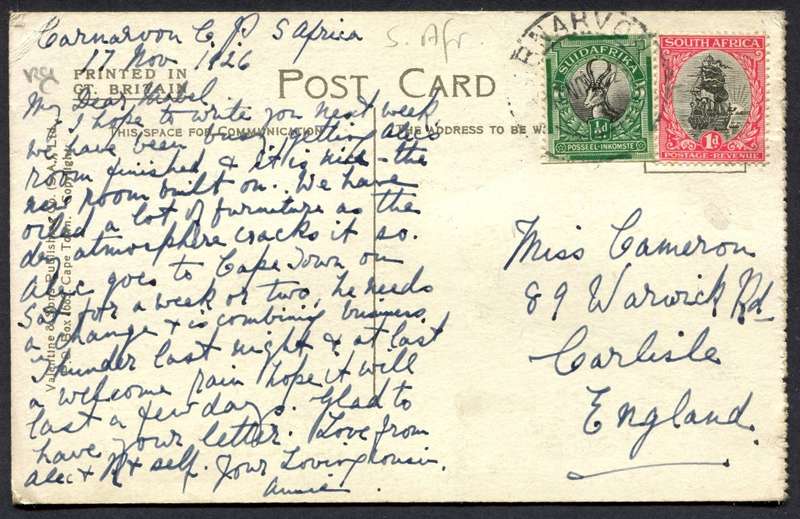 Carnarvon C P S Africa
17 Nov 1926
S. Afr
PRINTED IN
GT. BRITAIN
POST CARD
THIS SPACE FOR COMMUNICATION
THE ADDRESS TO BE W
My Dear Mabel
I hope to write you next week
we have been busy getting Alec's
room finished & it is nice - the
new room built on. We have
oiled a lot of furniture as the
dry atmosphere cracks it so.
Alec goes to Cape Town on
Sat for a week or two, he needs
a change & is combining business.
Thunder last night & at last
a welcome rain hope it will
last a few days. Glad to
have your letter. Love from
Alec & & self. Your Loving Cousin.
Annie
Valentine & Sons Publishing Co. (S.A.) Ltd.
P.O. Box 1685, Cape Town. Copyright.
RNARVO
SUIDAFRIKA
½d
POSSEEL-INKOMSTE
SOUTH AFRICA
1d
POSTAGE-REVENUE
Miss Cameron
89 Warwick Rd
Carlisle
England.